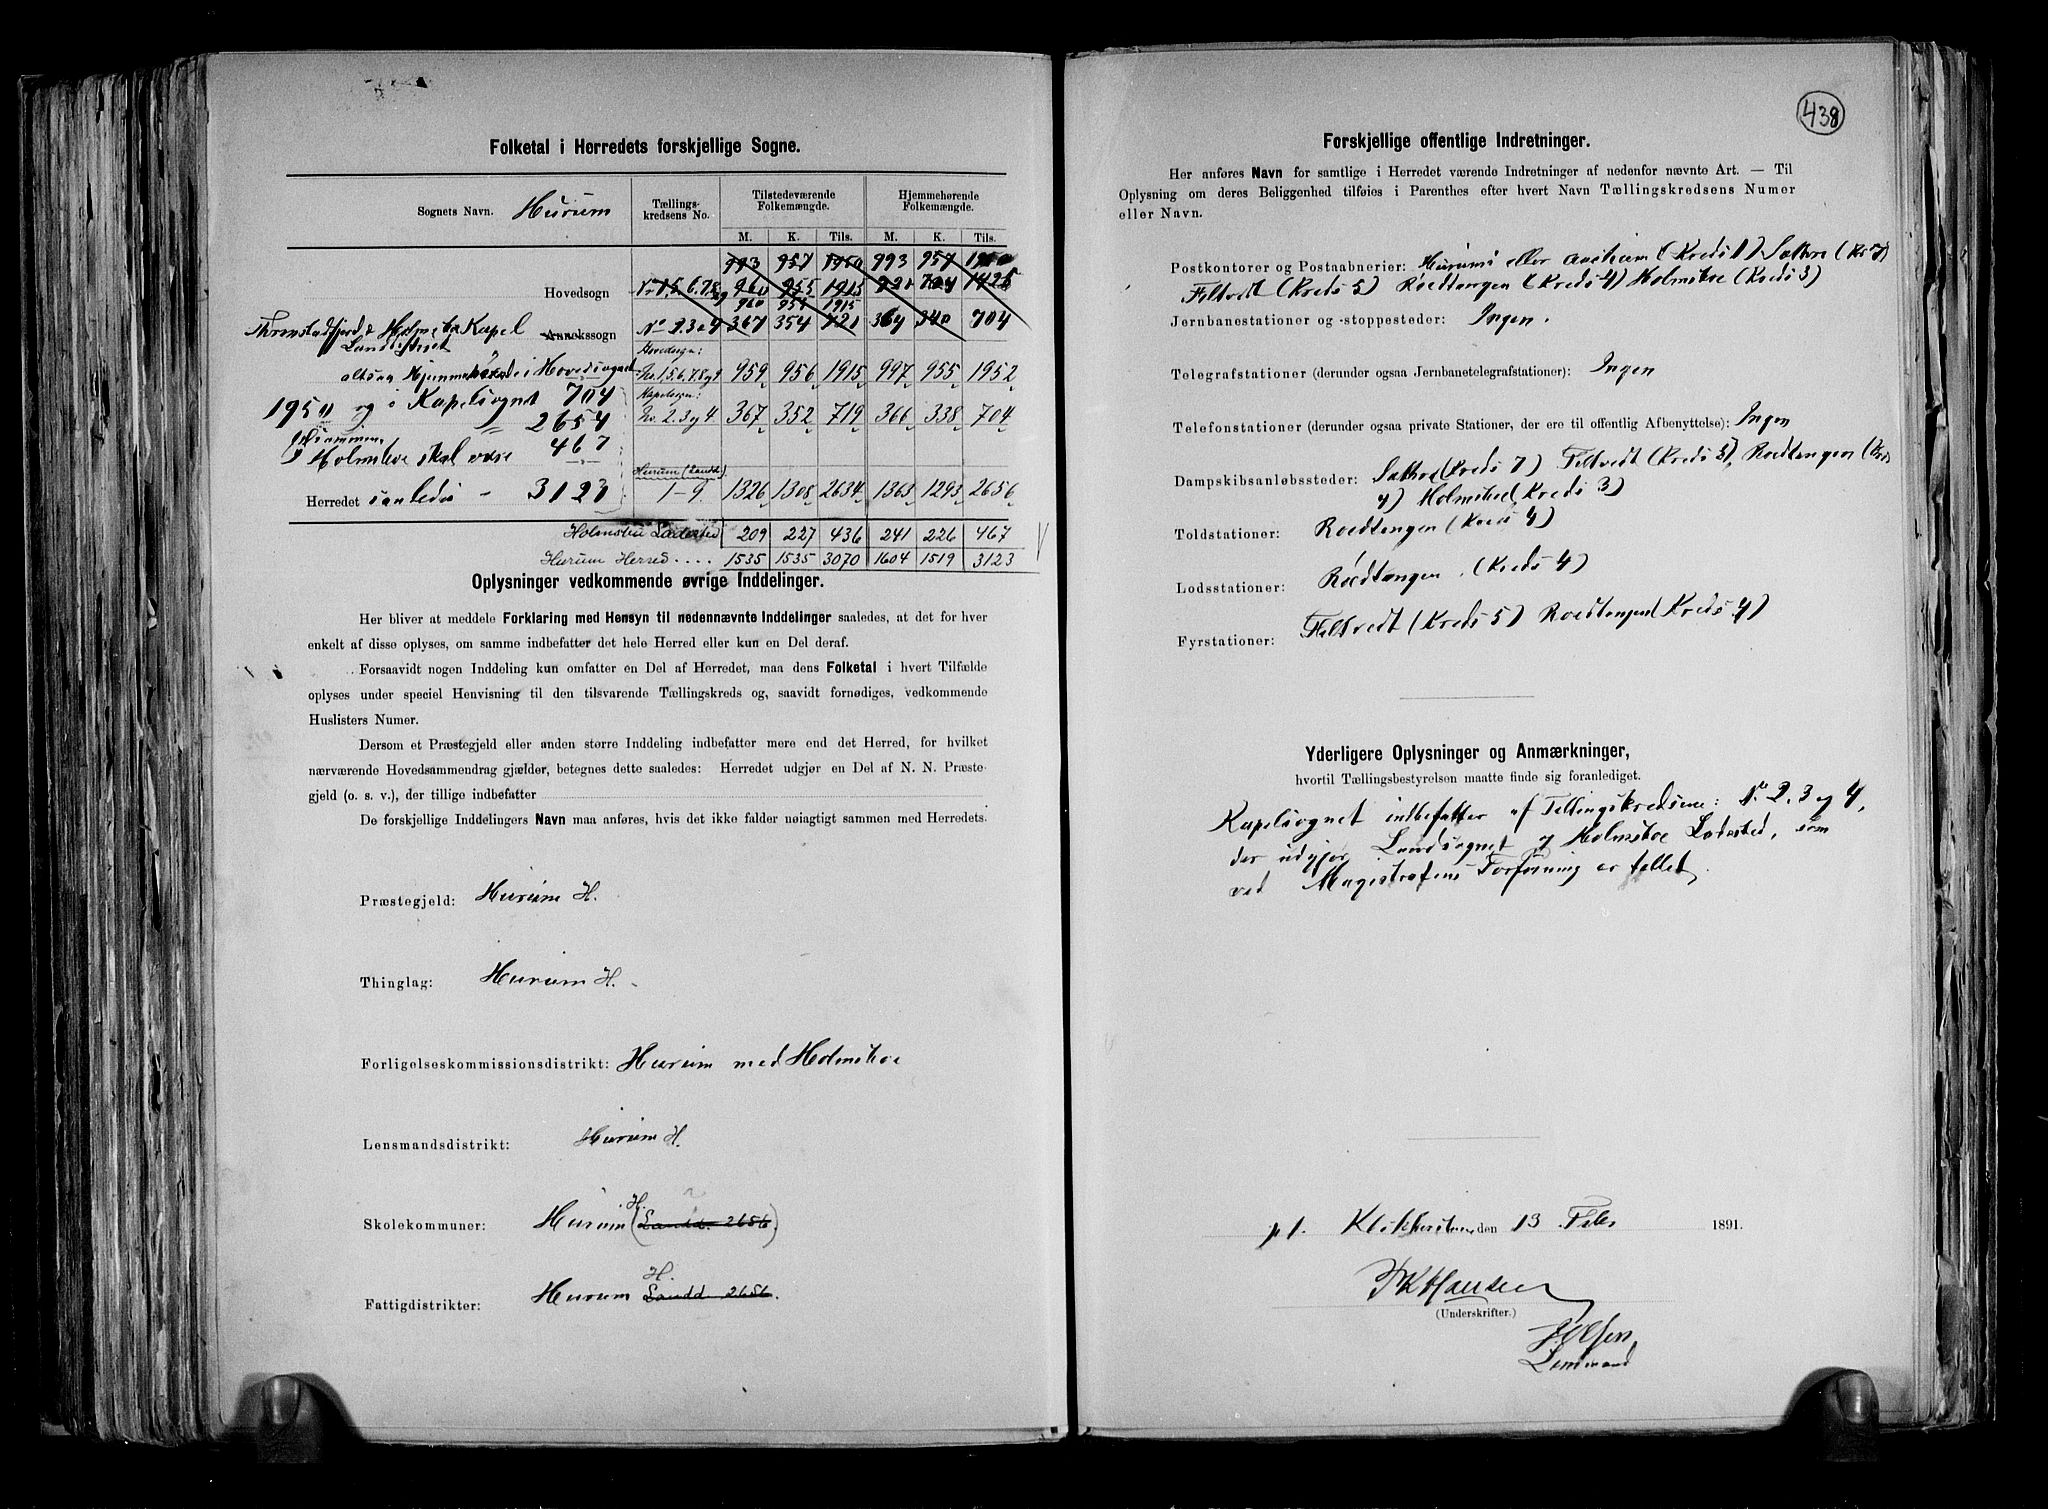 Folketal i Herredets forskjellige Sogne.
Sognets Navn. Hurum
Tællingskredsens No.
Tilstedeværende Folkemængde.
Hjemmehørende Folkemængde.
M. K. Tils. M. K. Tils.
993 957 1950 993 957 1950
Hovedsogn 960 955 1915 704
960 955 1915
Kapel Annekssogn No 2.3 og 4 367 354 721 364 340 704
Landdistriet
Hovedsogn:
altsaa Hjemmehørende i Hovedsognet No. 1.5.6.7.8 og 9 959 956 1915 997 955 1952
1950 og i Kapelsognet 704
Kapelsogn:
No. 2. 3 og 4 367 352 719 366 338 704
2654
Holmsboe skal være 467
Hurum (Landd.)
Herredet samledes - 3123 1-9. 1326 1308 2634 1363 1293 2656
Holmsbu Ladested 209 227 436 241 226 467
Hurum Herred .... 1535 1535 3070 1604 1519 3123
Oplysninger vedkommende øvrige Inddelinger.
Her bliver at meddele Forklaring med Hensyn til nedennævnte Inddelinger saaledes, at det for hver
enkelt af disse oplyses, om samme indbefatter det hele Herred eller kun en Del deraf.
Forsaavidt nogen Inddeling kun omfatter en Del af Herredet, maa dens Folketal i hvert Tilfælde
oplyses under speciel Henvisning til den tilsvarende Tællingskreds og, saavidt fornødiges, vedkommende
Huslisters Numer.
Dersom et Præstegjeld eller anden større Inddeling indbefatter mere end det Herred, for hvilket
nærværende Hovedsammendrag gjælder, betegnes dette saaledes: Herredet udgjør en Del af N. N. Præste-
gjeld (o. s. v.), der tillige indbefatter
De forskjellige Inddelingers Navn maa anføres, hvis det ikke falder nøiagtigt sammen med Herredets.
Præstegjeld: Hurum H.
Thinglag: Hurum H.
Forligelseskommissionsdistrikt: Hurum med Holmsboe
Lensmandsdistrikt: Hurum H.
H.
Skolekommuner: Hurum (Landd. 2656.)
H.
Fattigdistrikter: Hurum Landd. 2656.
438
Forskjellige offentlige Indretninger.
Her anføres Navn for samtlige i Herredet værende Indretninger af nedenfor nævnte Art. — Til
Oplysning om deres Beliggenhed tilføies i Parenthes efter hvert Navn Tællingskredsens Numer
eller Navn.
Postkontorer og Postaabnerier: Hurum eller (Kreds 1) Sætre (Kds 7)
Filtvedt (Kreds 5) Rødtangen (Kreds 4) Holmsboe (Kreds 3)
Jernbanestationer og -stoppesteder: Ingen.
Telegrafstationer (derunder ogsaa Jernbanetelegrafstationer): Ingen
Telefonstationer (derunder ogsaa private Stationer, der ere til offentlig Afbenyttelse): Ingen
Dampskibsanløbssteder: Sætre (Kreds 7) Filtvedt (Kreds 5), Rødtangen (Kreds
4) Holmsboe (Kreds 3)
Toldstationer: Rødtangen (Kreds 4)
Lodsstationer: Rødtangen. (Kreds 4)
Fyrstationer: Filtvedt (Kreds 5) Rødtangen (Kreds 4)
Yderligere Oplysninger og Anmærkninger,
hvortil Tællingsbestyrelsen maatte finde sig foranlediget.
Kapelsognet indbefatter af Tellingskredsene: No 2, 3 og 4,
der udgjør Landsognet og Holmsboe Ladested, som
ved Magistratens Forføining er tellet.
p.t. den 13 Febr 1891.
Hansen
(Underskrifter.)
Olsen,
Lensmand